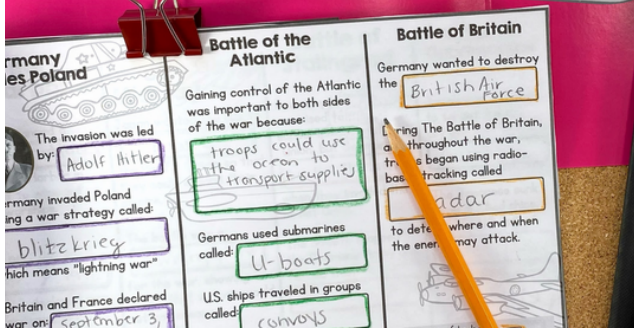 rmany
es Poland
The invasion was led
by: Adolf Hitler
ermany invaded Poland
ing a war strategy called:
blitzkrieg
hich means "lightning war"
Britain and France declared
war on: September 3,
Battle of the
Atlantic
Gaining control of the Atlantic
was important to both sides
of the war because:
troops could use
the ocean to
transport supplies
Germans used submarines
called: U-boats
U.S. ships traveled in groups
called: convoys
Battle of Britain
Germany wanted to destroy
the British Air
Force
During The Battle of Britain,
throughout the war,
began using radio-
tracking called
adar
to dete where and when
the enem may attack.